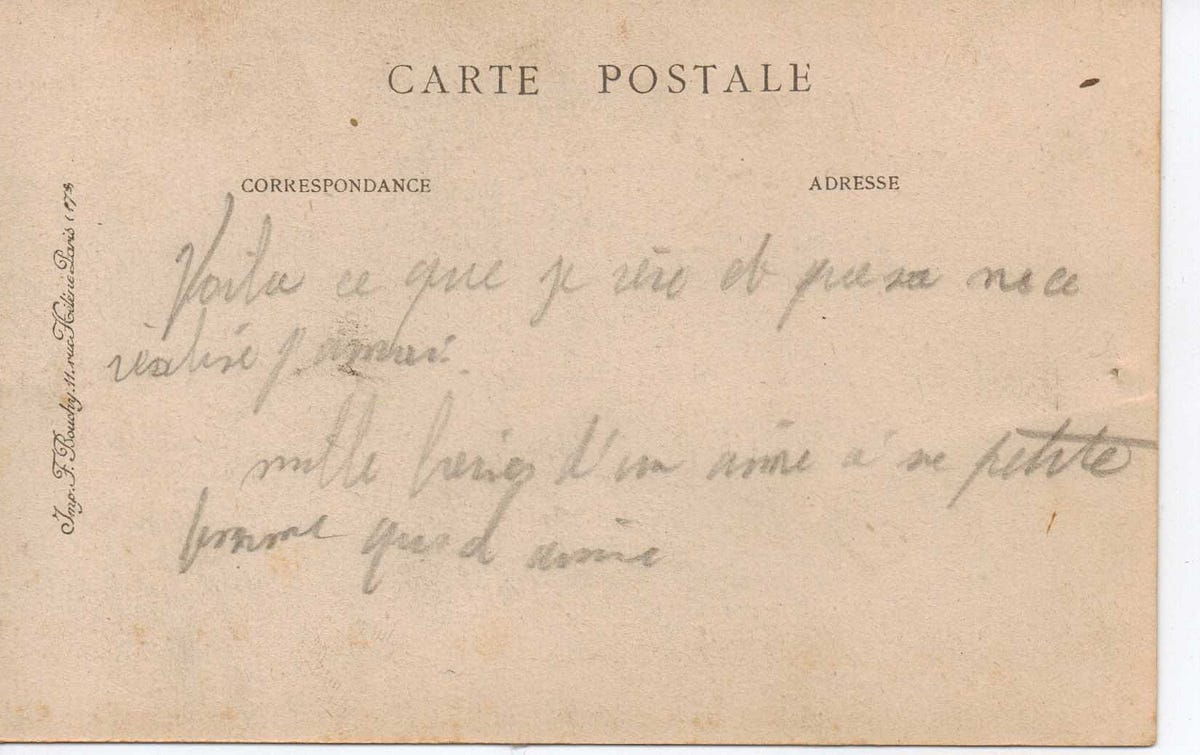 CARTE POSTALE
CORRESPONDANCE
ADRESSE
Imp. F. Bouchy. 11. rue Hélène Paris (17e)
Voila ce que je rêve et ne ce
réalise jamai
mille d'un aimé à sa petite
femme aimé